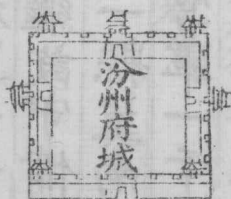 汾州府城